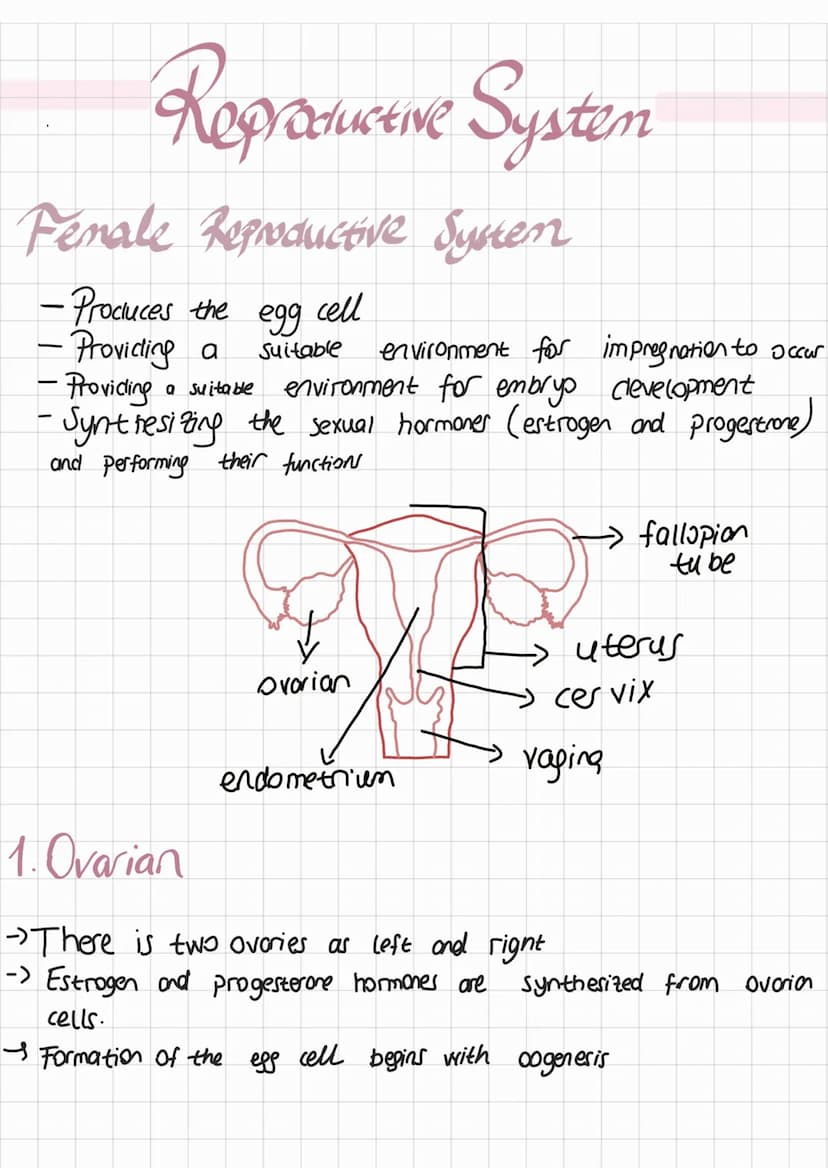 Reproductive System
Female Reproductive System
- Produces the egg cell
- Providing a suitable environment for impregnation to occur
- Providing a suitable environment for embryo development
- Synthesizing the sexual hormones (estrogen and progestrone)
and performing their function
fallopian
tube
uterus
ovarian
cervix
vaping
endometrium
1. Ovarian
→ There is two ovaries as left and right
→ Estrogen and progesterone hormones are synthesized from ovarian
cells.
→ Formation of the egg cell begins with oogenesis